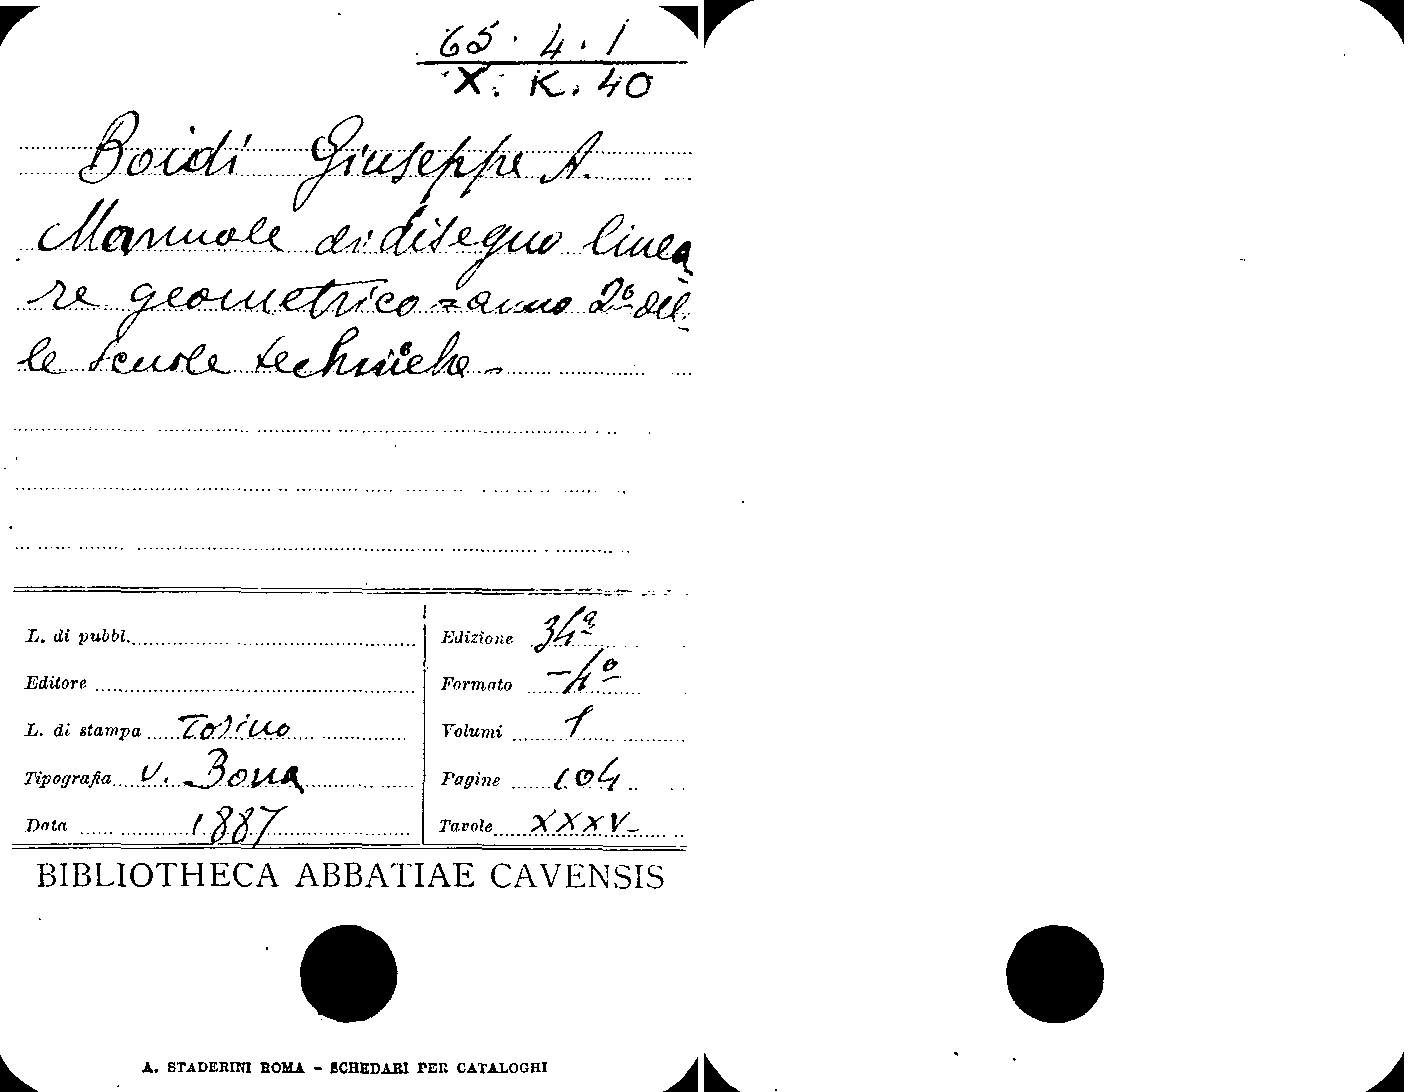 65 . 4 . 1
X. K. 40
Boidi Giuseppe A.
Manuale di disegno linea-
re geometrico = anno 2º del-
le scuole techniche -
L. di pubbl.
Edizione 34ª
Editore
Formato -4º
L. di stampa Torino
Volumi 1
Tipografia V. Bona
Pagine 104
Data 1887
Tavole XXXV-
BIBLIOTHECA ABBATIAE CAVENSIS
A. STADERINI ROMA - SCHEDARI PER CATALOGHI